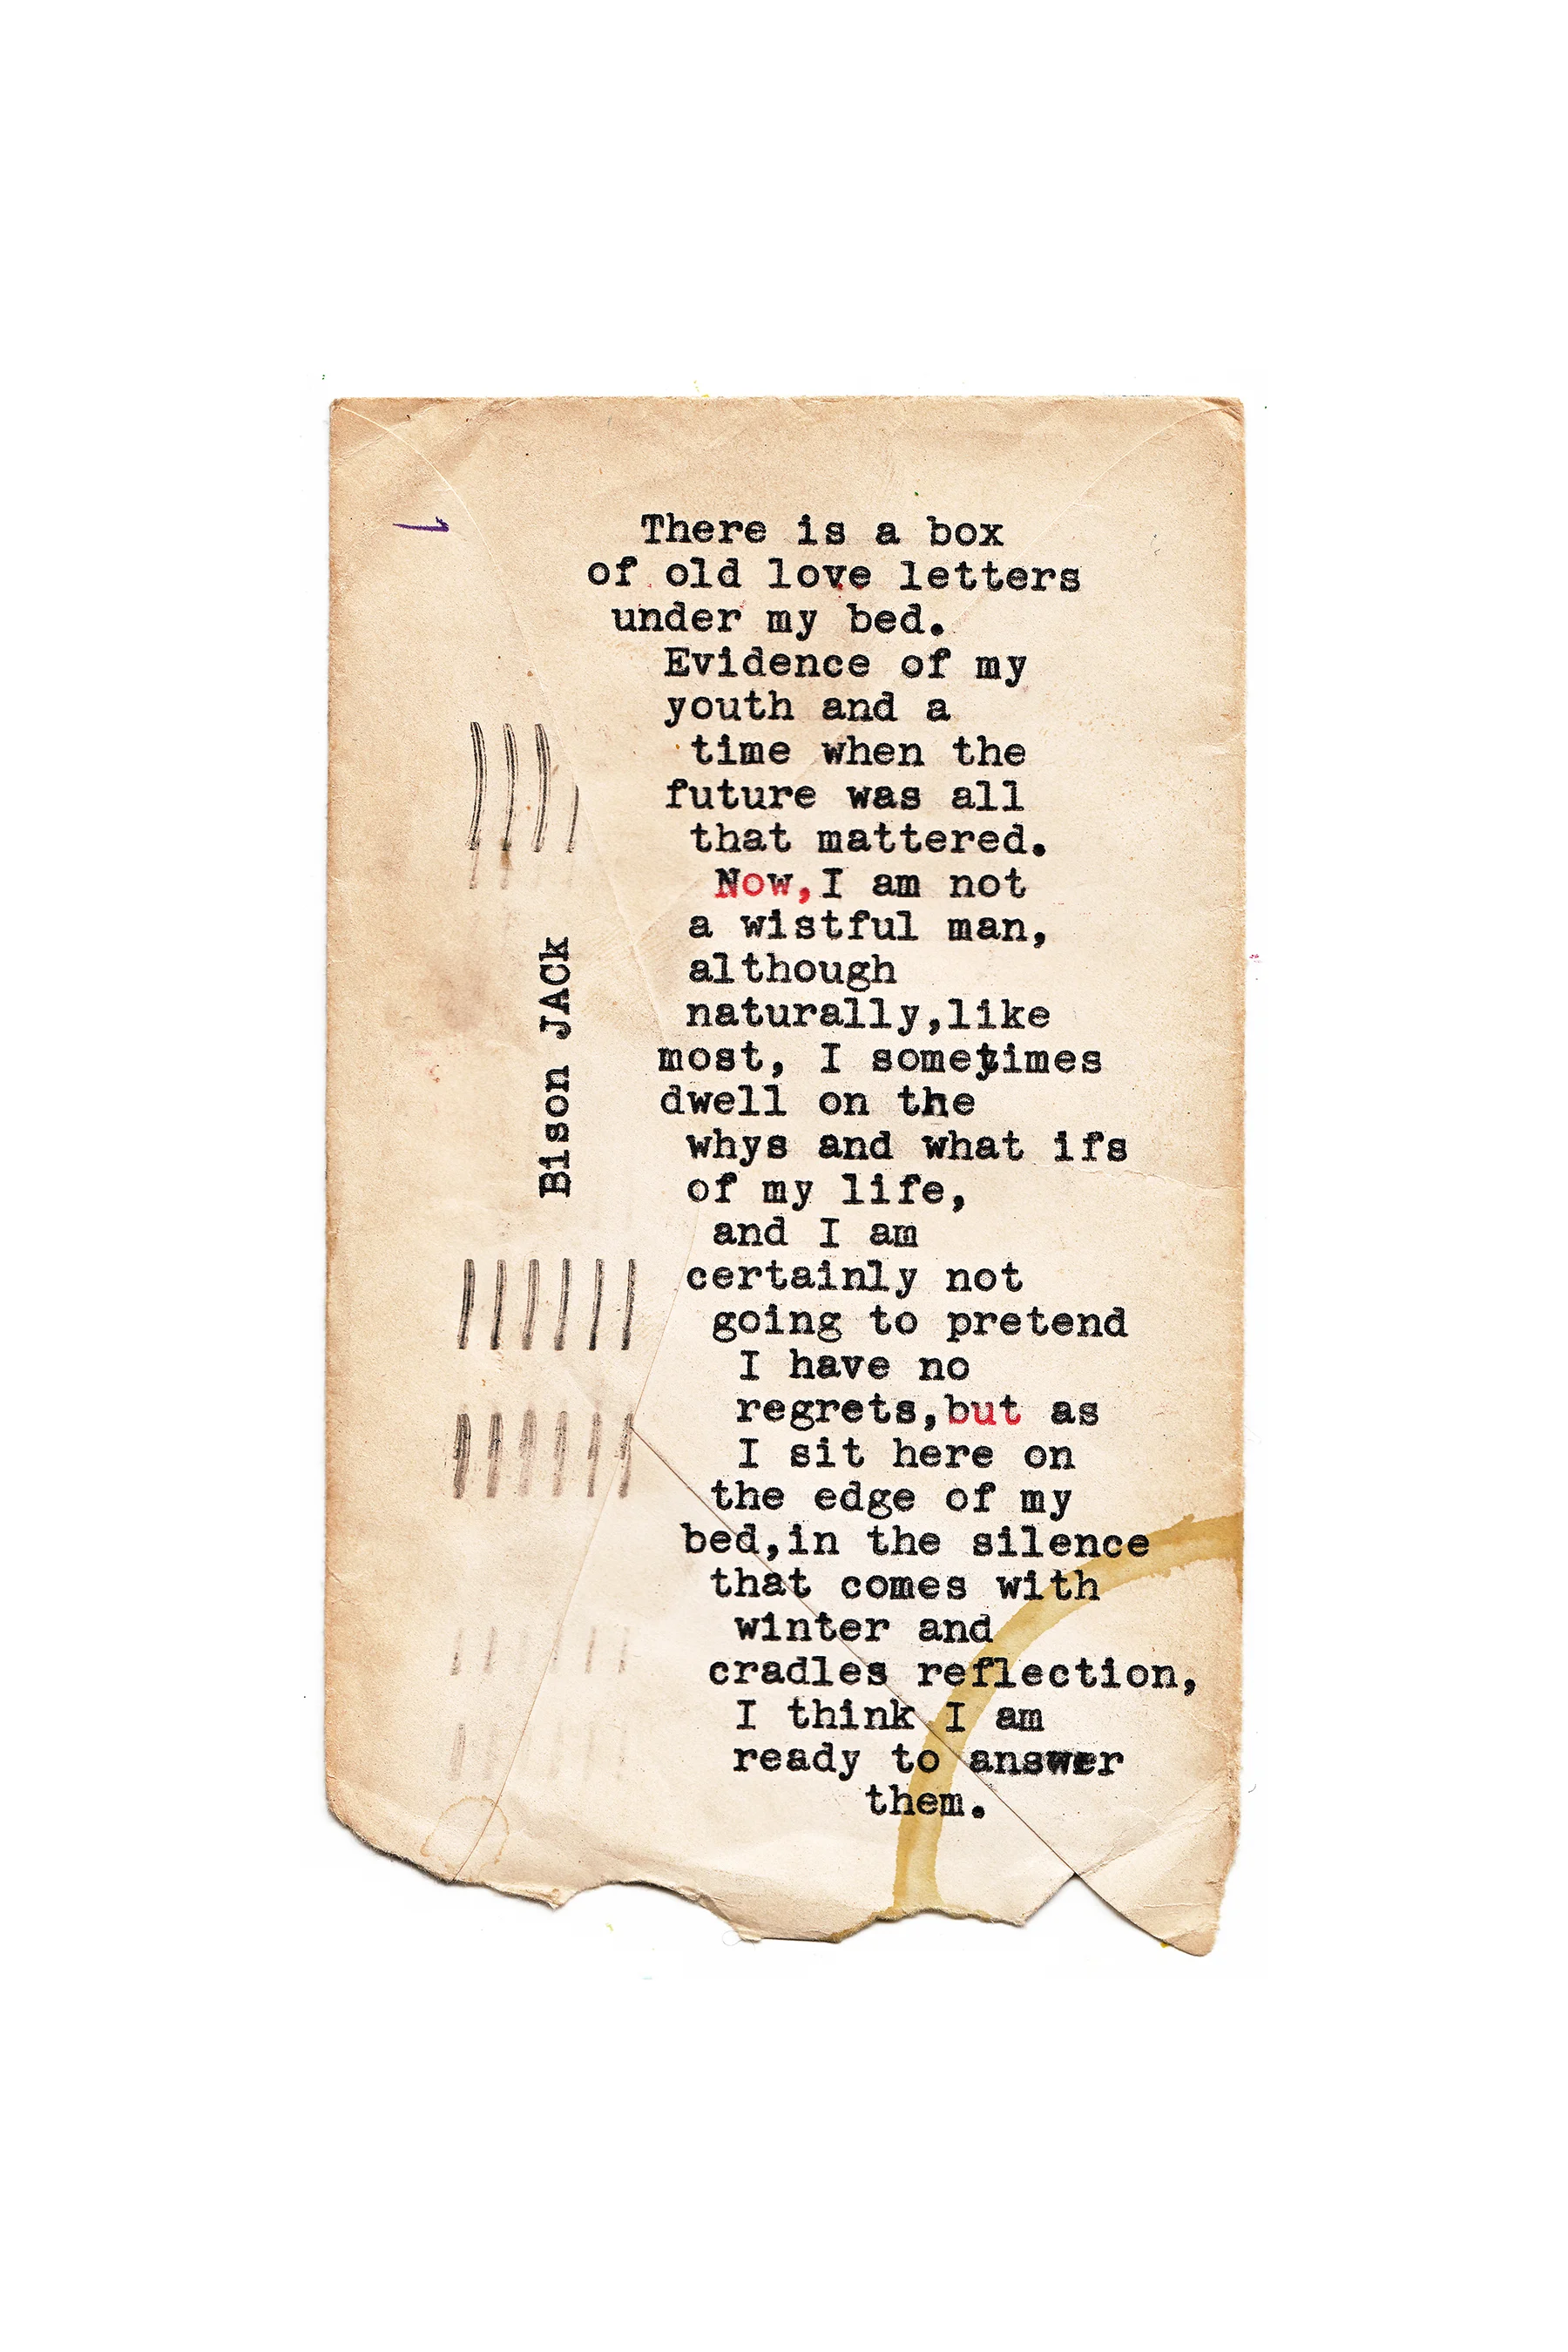 There is a box
of old love letters
under my bed.
Evidence of my
youth and a
time when the
future was all
that mattered.
Now,I am not
a wistful man,
although
naturally,like
most, I sometimes
dwell on the
whys and what ifs
of my life,
and I am
certainly not
going to pretend
I have no
regrets,but as
I sit here on
the edge of my
bed,in the silence
that comes with
winter and
cradles reflection,
I think I am
ready to answer
them.
Bison JACk
1